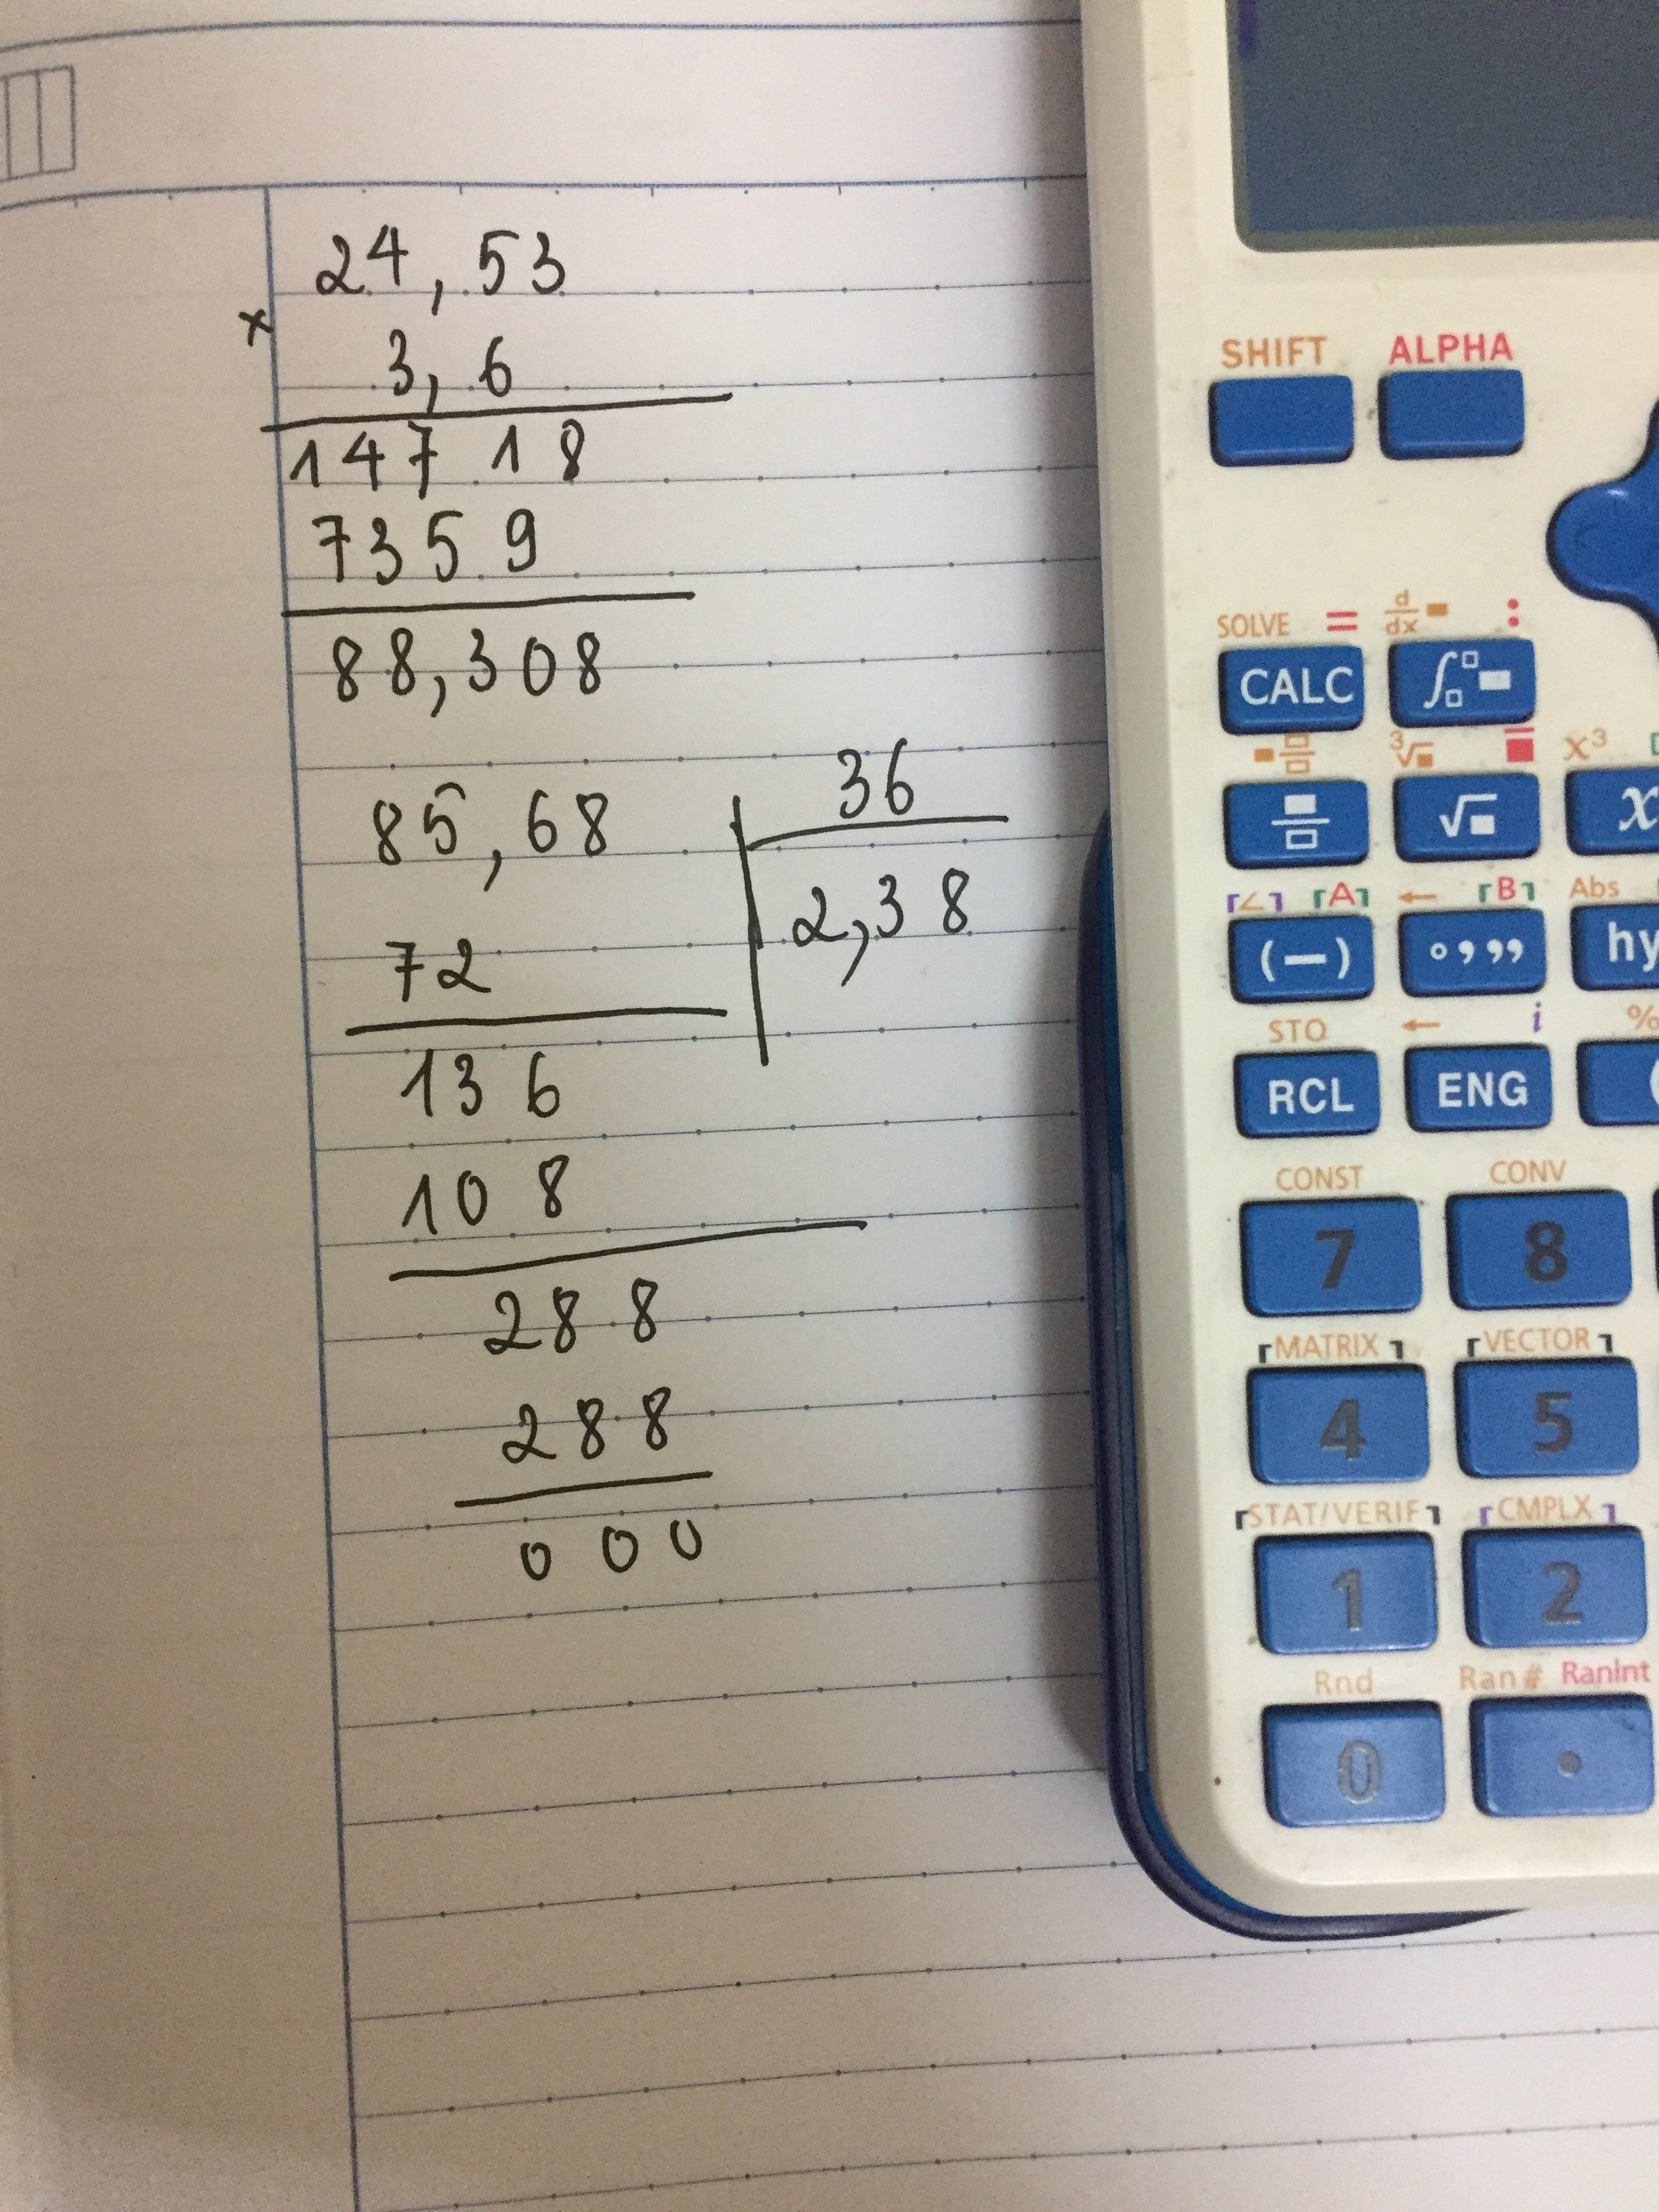 24,53
x
3,6
147 18
735 9
88,308
85,68
36
2,38
72
13 6
10 8
288
288
000
SHIFT ALPHA
SOLVE = d/dx :
CALC ∫
³√ x³
√ x
∠ A ← B Abs
(−) °,,, hy
STO ← i %
RCL ENG (
CONST CONV
7 8
MATRIX VECTOR
4 5
STAT/VERIF CMPLX
1 2
Rnd Ran# RanInt
0 .